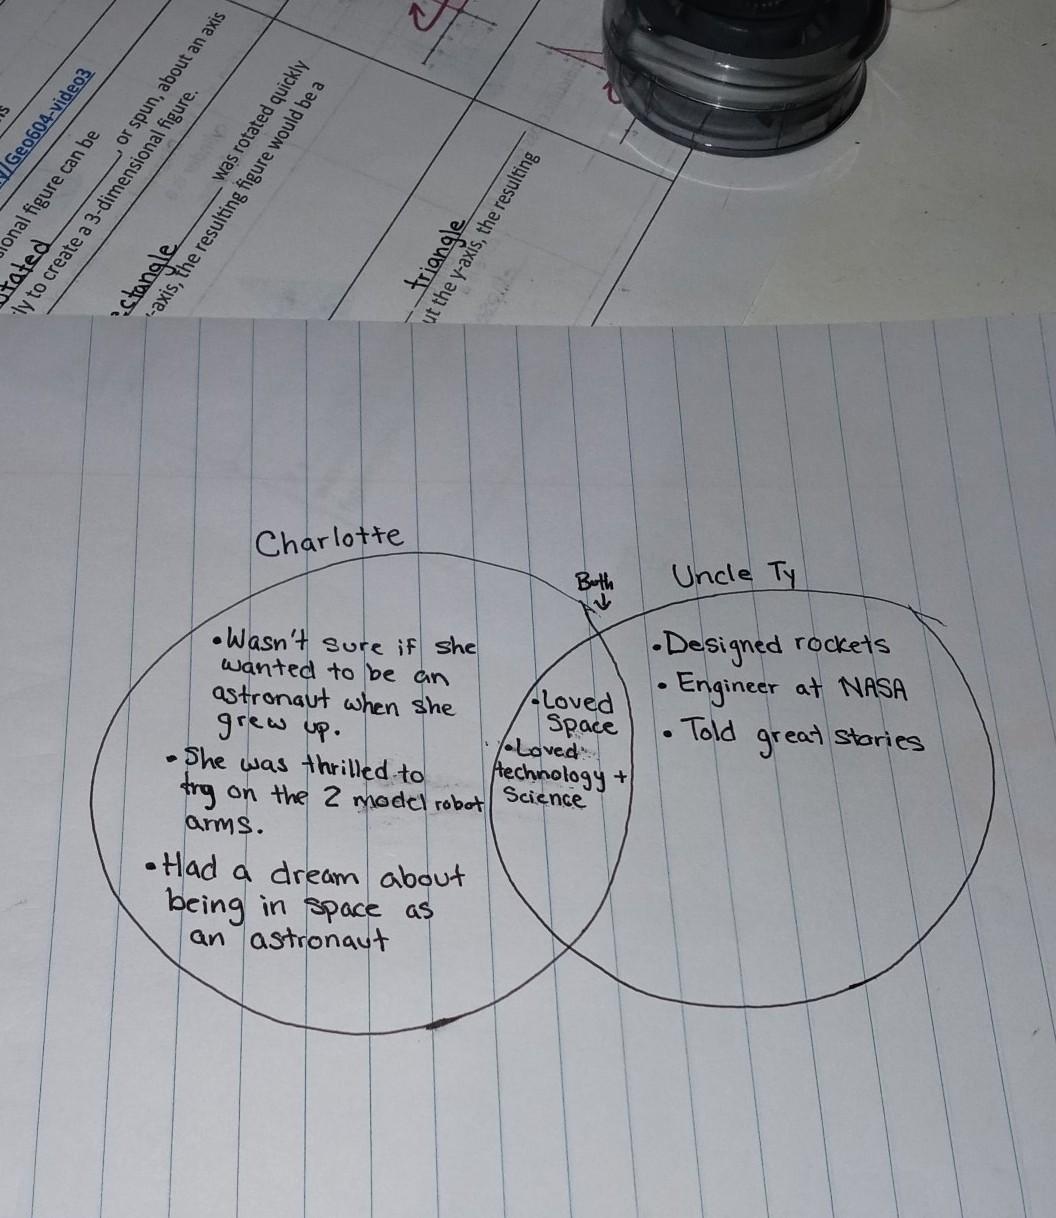 /Geo604-video3
ional figure can be
tated , or spun, about an axis
ly to create a 3-dimensional figure.
ctangle was rotated quickly
-axis, the resulting figure would be a
triangle
ut the y-axis, the resulting
Charlotte
• Wasn't sure if she
wanted to be an
astronaut when she
grew up.
• She was thrilled to
try on the 2 model robot
arms.
• Had a dream about
being in space as
an astronaut
Both
• Loved
Space
• Loved
technology +
Science
Uncle Ty
• Designed rockets
• Engineer at NASA
• Told great stories